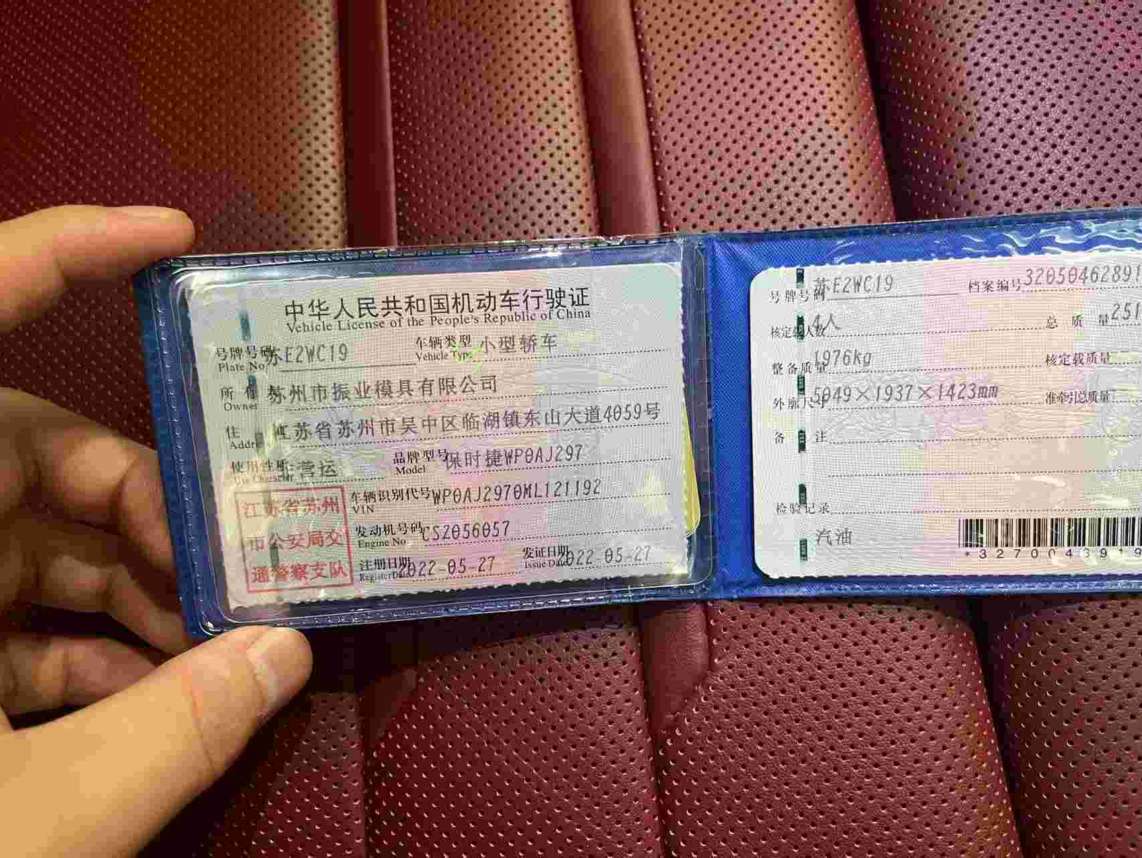 中华人民共和国机动车行驶证
Vehicle License of the People's Republic of China
号牌号码 苏E2WC19 车辆类型 小型轿车
Plate No. Vehicle Type
所 苏州市振业模具有限公司
Owner
住 江苏省苏州市吴中区临湖镇东山大道4059号
Addre
使用性质 营运 品牌型号 保时捷WP0AJ297
Use Character Model
江苏省苏州
市公安局交
通警察支队
车辆识别代号 WP0AJ2970ML121192
VIN
发动机号码 CSZ056057
Engine No
注册日期 2022-05-27 发证日期 2022-05-27
Register Date Issue Date
号牌号码 苏E2WC19 档案编号 32050462891
核定载人数 4人 总质量 251
整备质量 1976kg 核定载质量
外廓尺寸 5049×1937×1423mm 准牵引总质量
备 注
检验记录
汽油
*3270043919